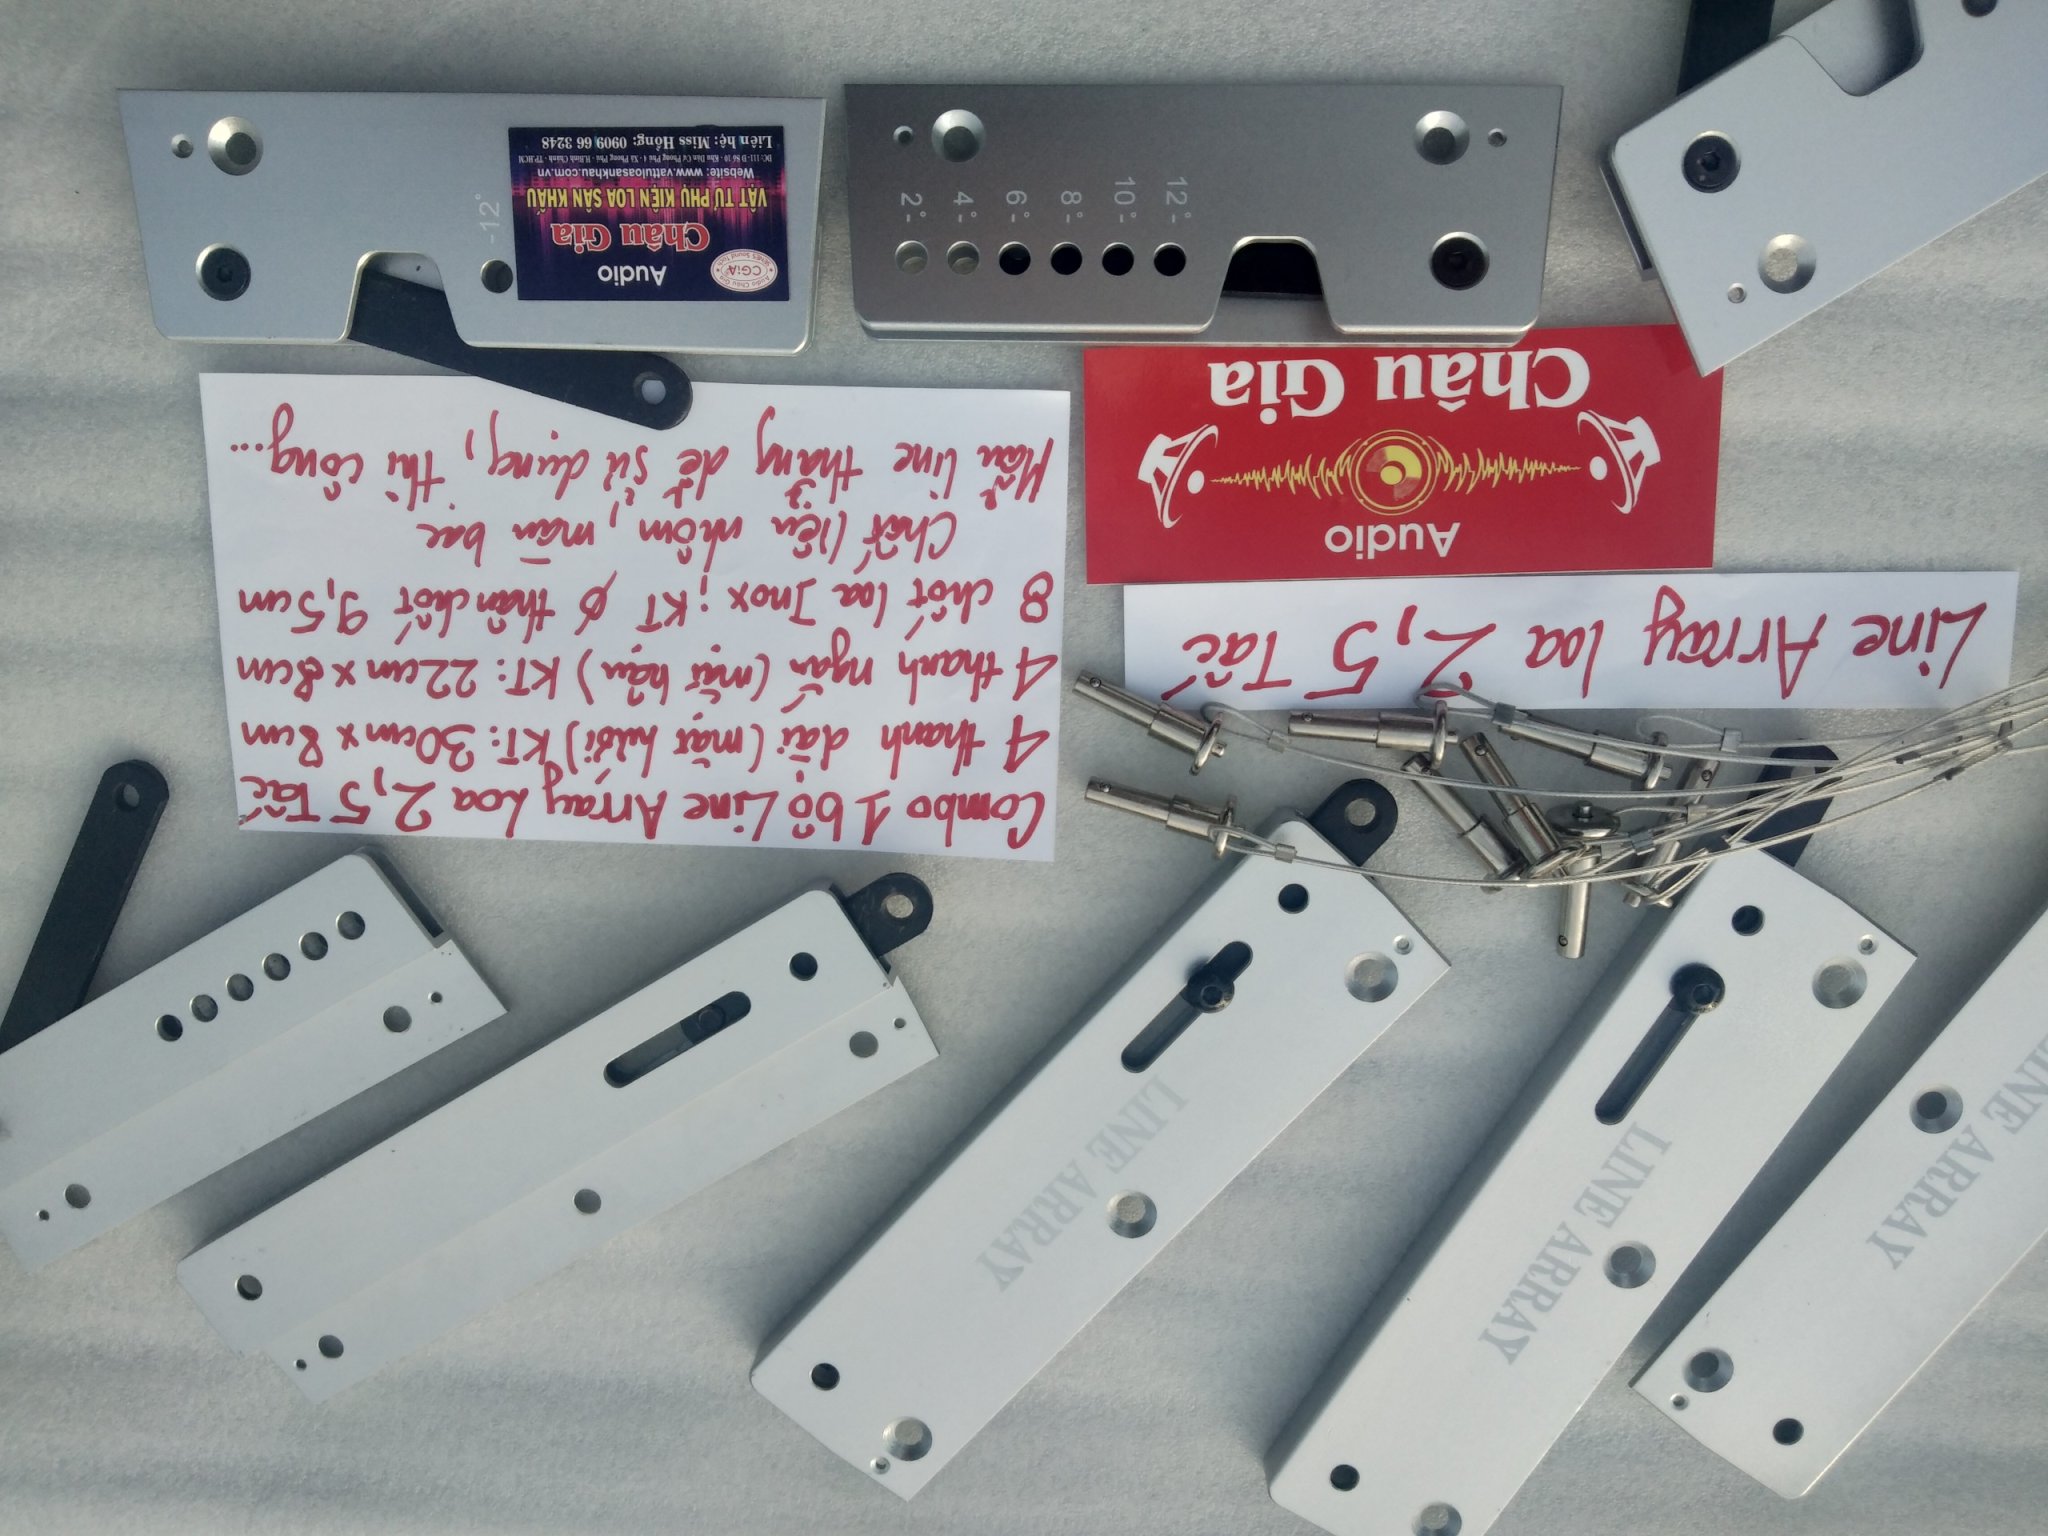 Line Array loa 2,5 Tấc
Audio
Châu Gia
Combo 1 bộ Line Array Loa 2,5 Tấc
4 thanh dài (mặt lưới) KT: 30cm x 8cm
4 thanh ngắn (mặt hậu) KT: 22cm x 8cm
8 chốt loa Inox; KT ϕ thân chốt 9,5cm
Chất liệu nhôm, màu bạc
Mẫu line thẳng dễ sử dụng, thi công...
Audio
CGiA
Châu Gia
VẬT TƯ PHỤ KIỆN LOA SÂN KHẤU
Website: www.vattuloasankhau.com.vn
Liên hệ: Miss Hồng: 0909 66 3248
-12°
2°-
4°-
6°-
8°-
10°-
12°-
LINE ARRAY
LINE ARRAY
LINE ARRAY